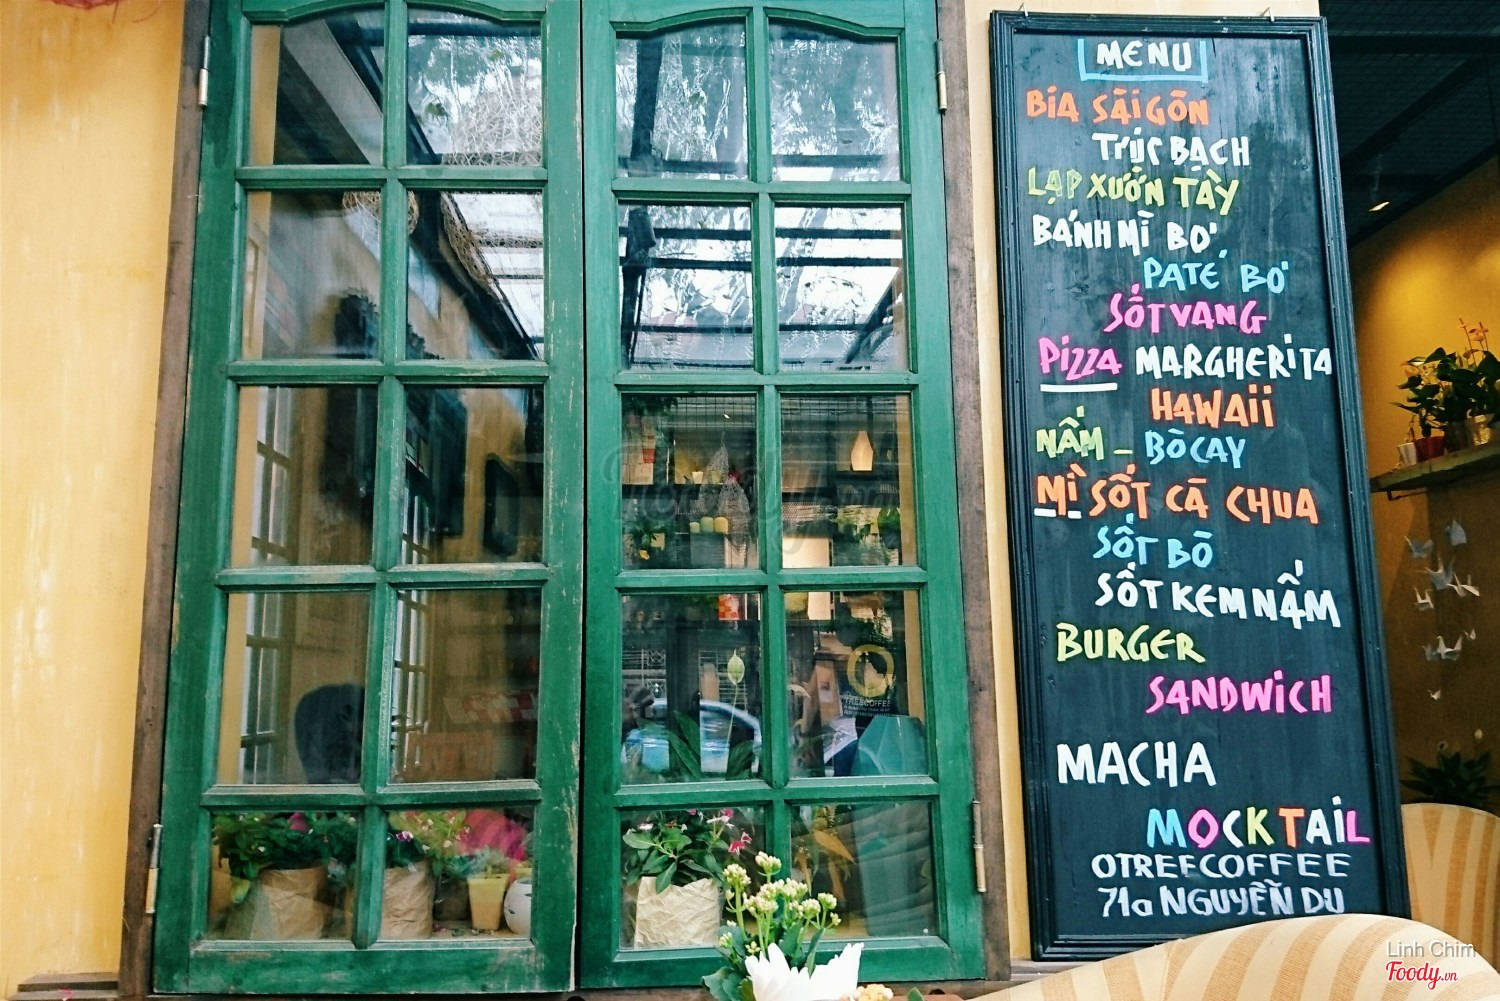 MENU
BIA SÀI GÒN
TRÚC BẠCH
LẠP XƯỞN TÀY
BÁNH MÌ BƠ
PATÉ BƠ
SỐT VANG
PIZZA MARGHERITA
HAWAII
NẤM - BÒ CAY
MÌ SỐT CÀ CHUA
SỐT BÒ
SỐT KEM NẤM
BURGER
SANDWICH
MACHA
MOCKTAIL
OTREECOFFEE
71a NGUYỄN DU
TREECOFFEE
Linh Chim
Foody.vn